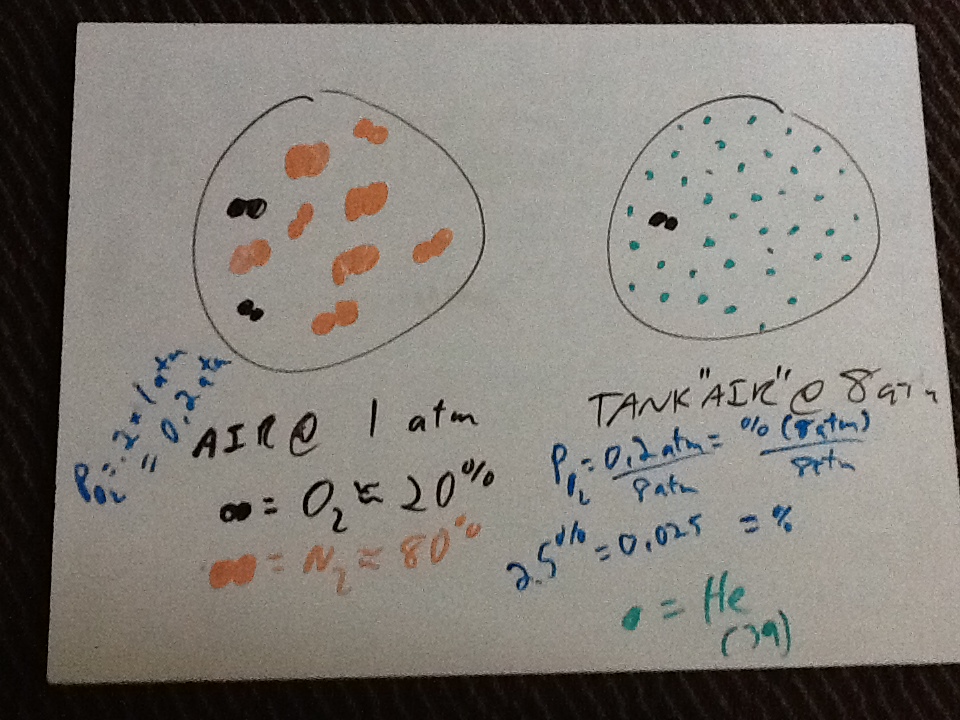 P O₂ = .2 x 1 atm
" 0.2 atm
AIR @ 1 atm
= O₂ ≈ 20%
= N₂ ≈ 80%
TANK "AIR" @ 8 atm
P O₂ = 0.2 atm = % (8 atm)
8 atm 8 atm
2.5% = 0.025 = %
= He
(39)